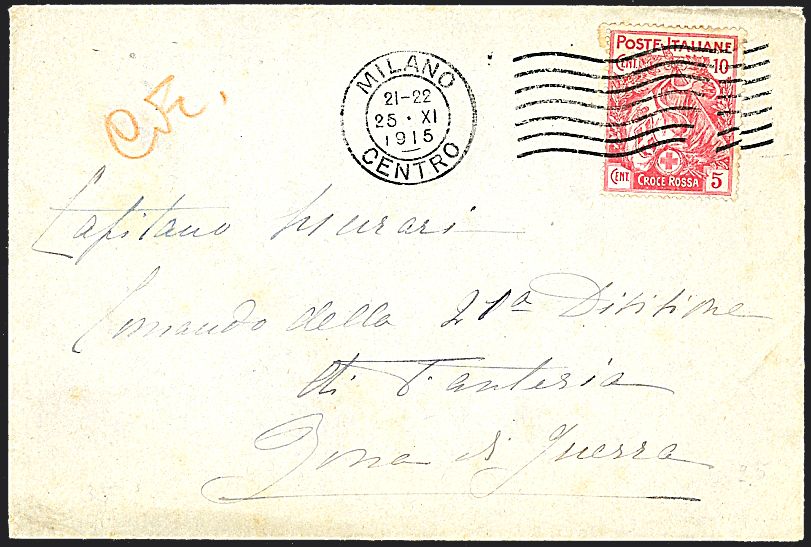 C.R.
MILANO
21-22
25 • XI
1915
CENTRO
POSTE ITALIANE
CENT. 10
CENT. 5
CROCE ROSSA
Capitano Murari
Comando della 21a Divisione
di Fanteria
Zona di Guerra